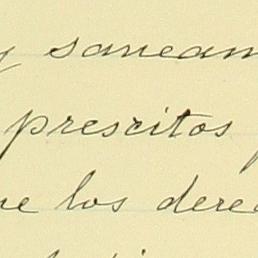 y saneam
prescitos p
ue los derec